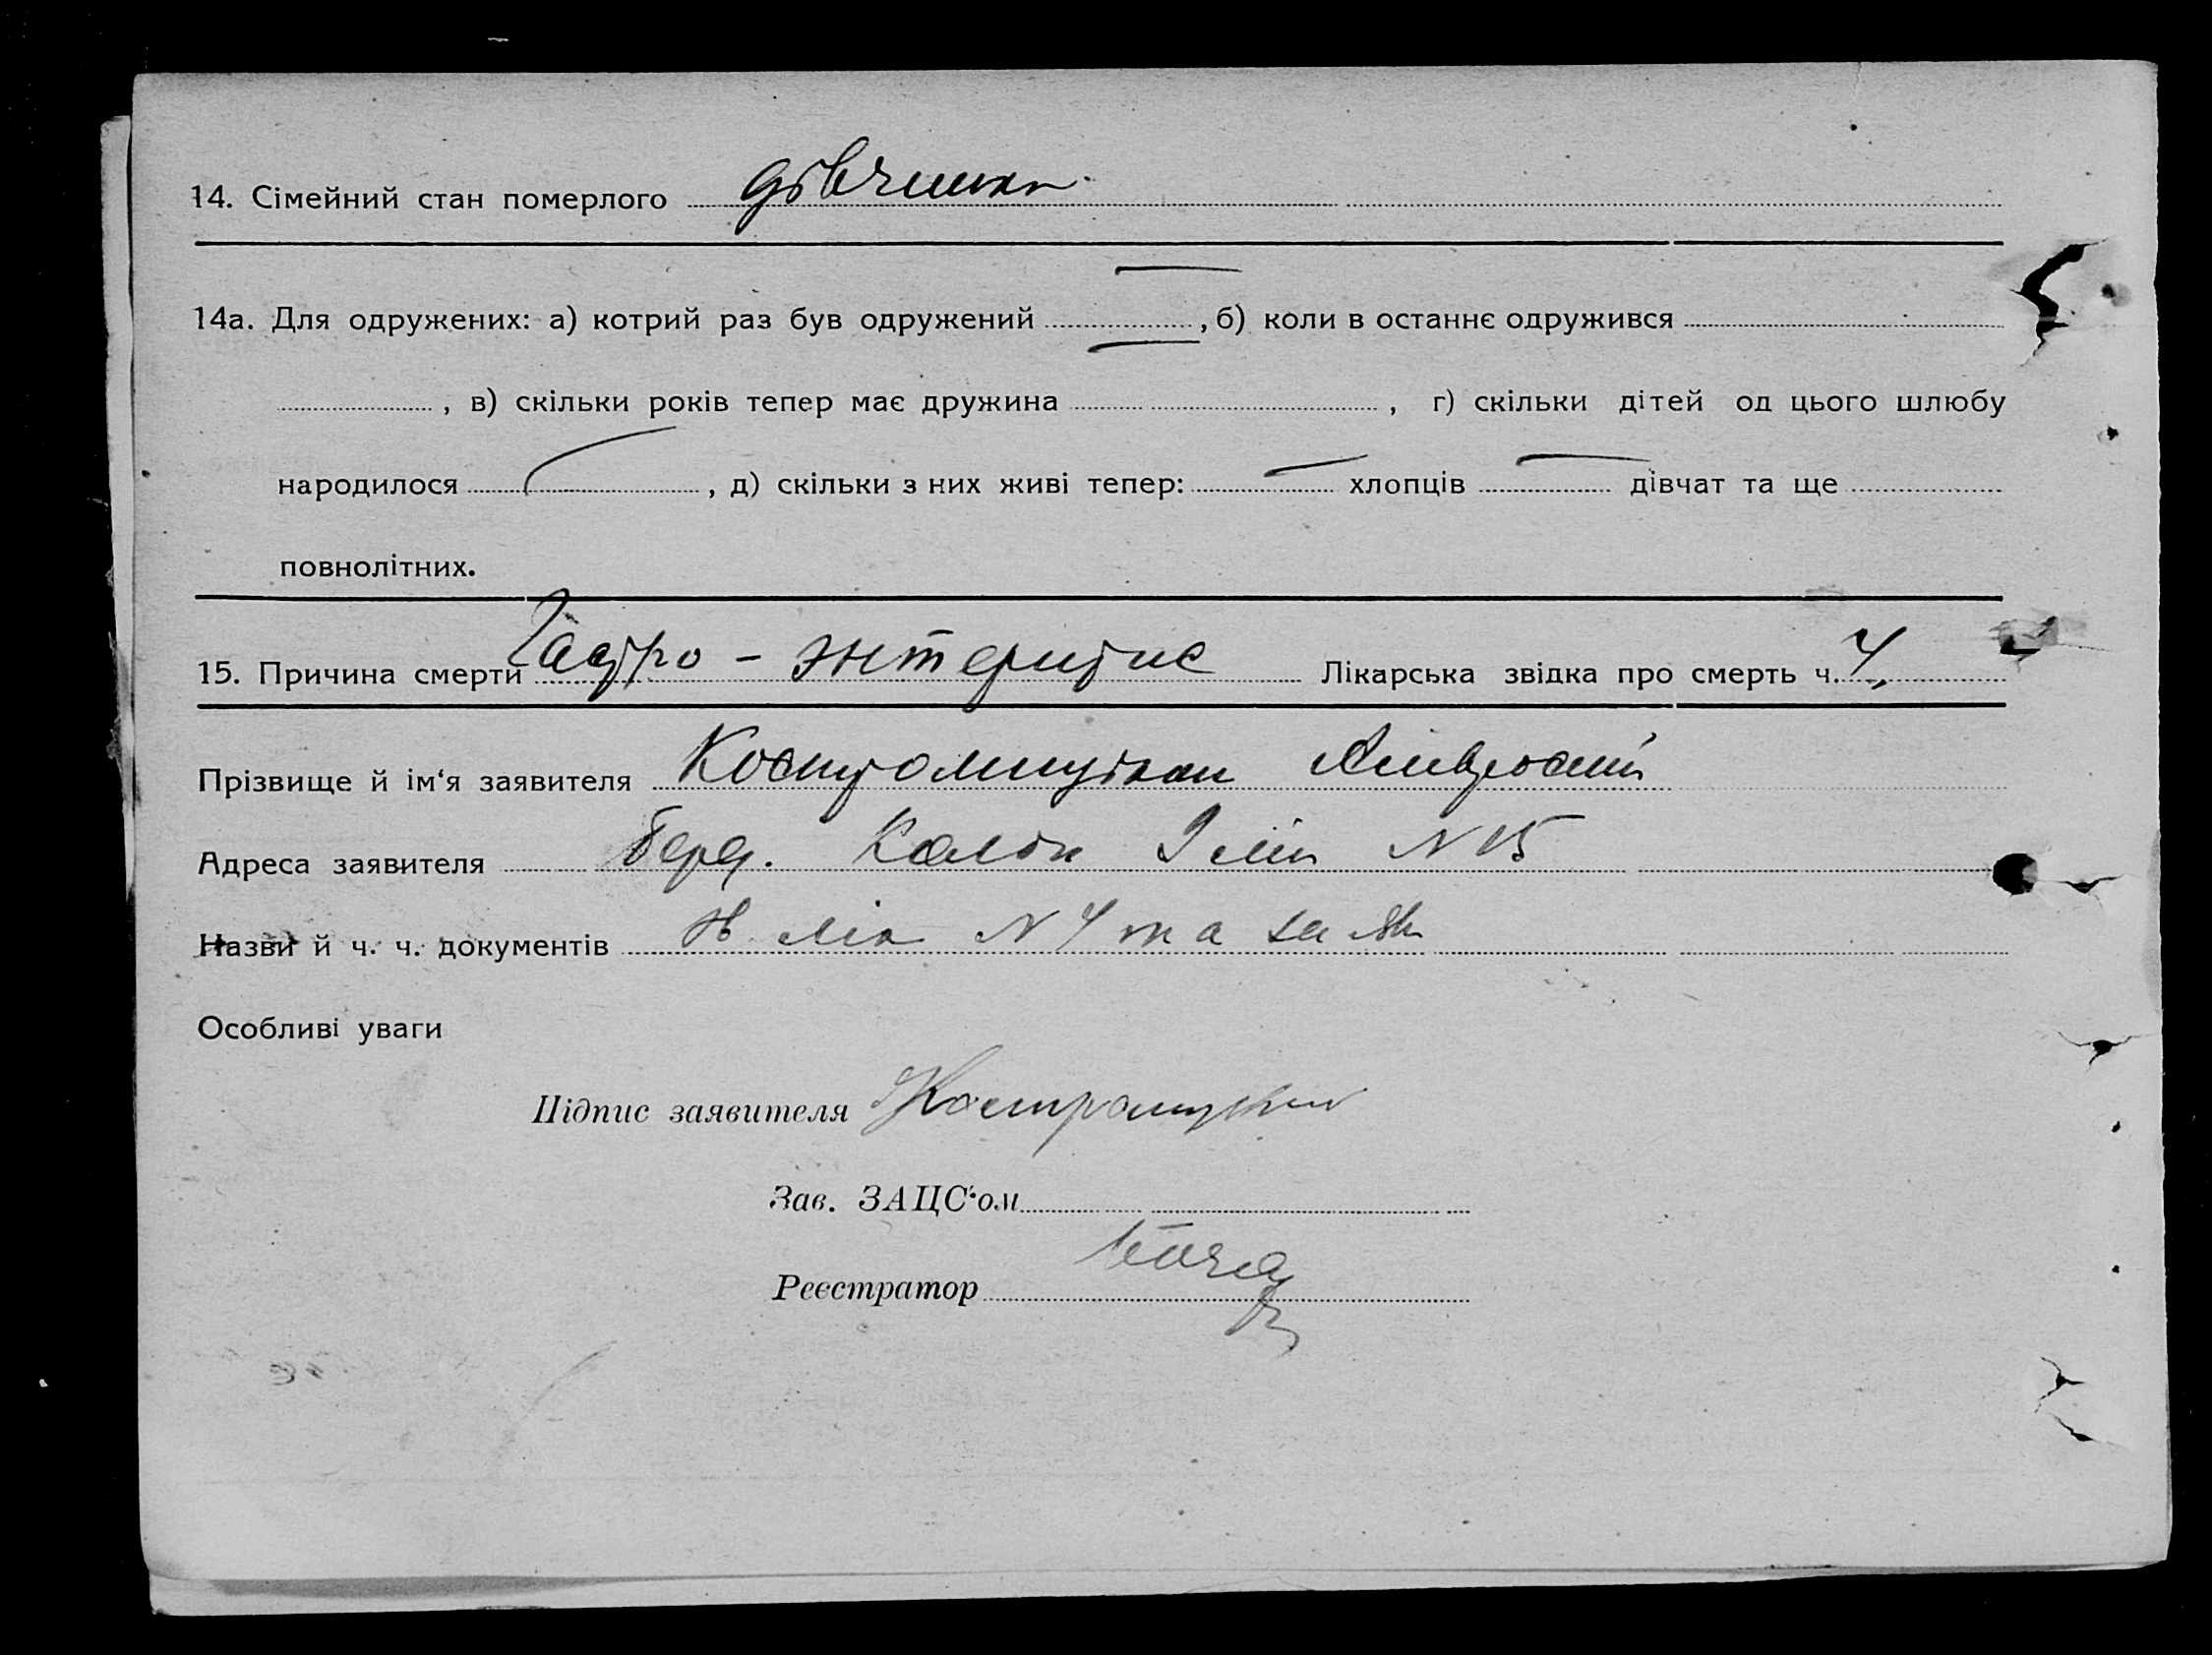 14. Сімейний стан померлого дівчинка
14а. Для одружених: а) котрий раз був одружений —, б) коли в останнє одружився
, в) скільки років тепер має дружина — , г) скільки дітей од цього шлюбу
народилося — , д) скільки з них живі тепер: — хлопців — дівчат та ще
повнолітних.
15. Причина смерти Гастро - энтеритис Лікарська звідка про смерть ч. 4
Прізвище й ім‘я заявителя Амвросий
Адреса заявителя Берд. N 15
Назви й ч. ч. документів N 4 та
Особливі уваги
Підпис заявителя
Зав. ЗАЦС‘ом
Реєстратор